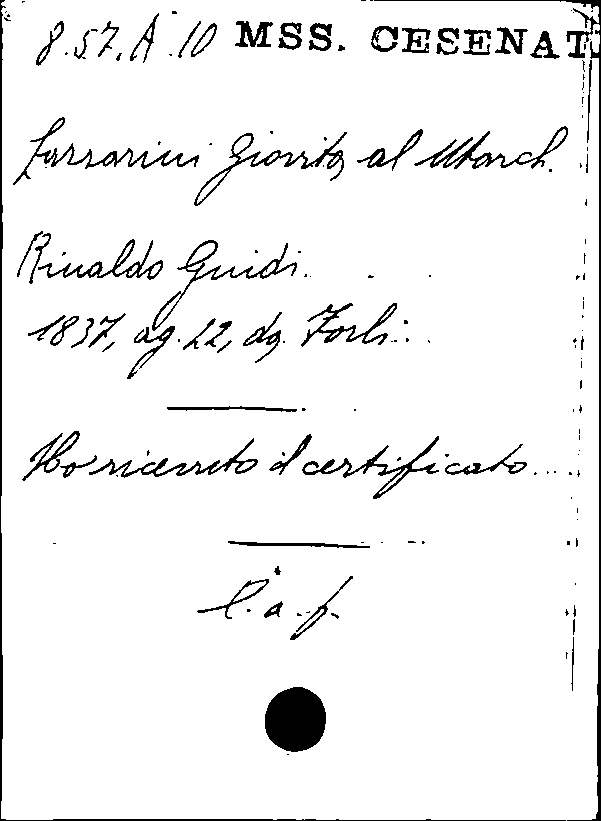 8.57.A.10 MSS. CESENAT.
Lazzarini Giovita, al March.
Rinaldo Guidi.
1837, ag. 22, da Forlì.
Ho ricevuto il certificato...
l. a. f.